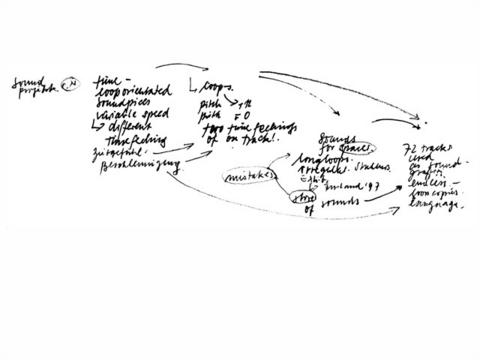 sound
projekt.
time -
loop orientated
soundpieces
variable speed
↳ different
timefeeling
Zeitgefühl.
Beschleunigung
↳ loops.
pitch
pitch = 0
two time feelings
of on track!.
mistakes
sounds
for spaces.
long loops.
store
of sounds
72 tracks
used
as sound-
endless -
loop copies.
language.